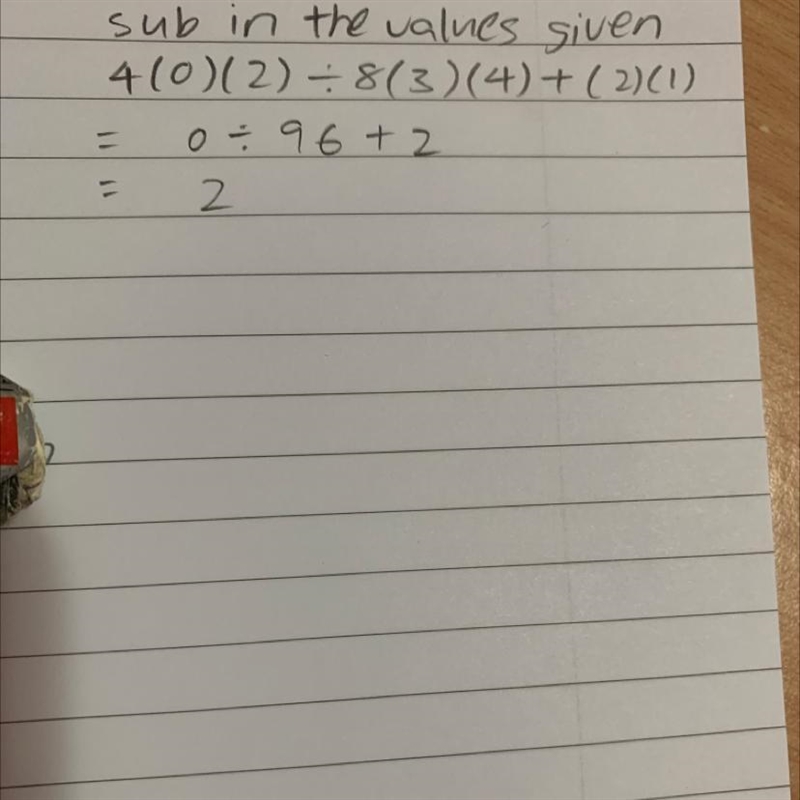 sub in the values given
4(0)(2) ÷ 8(3)(4) + (2)(1)
= 0 ÷ 96 + 2
= 2